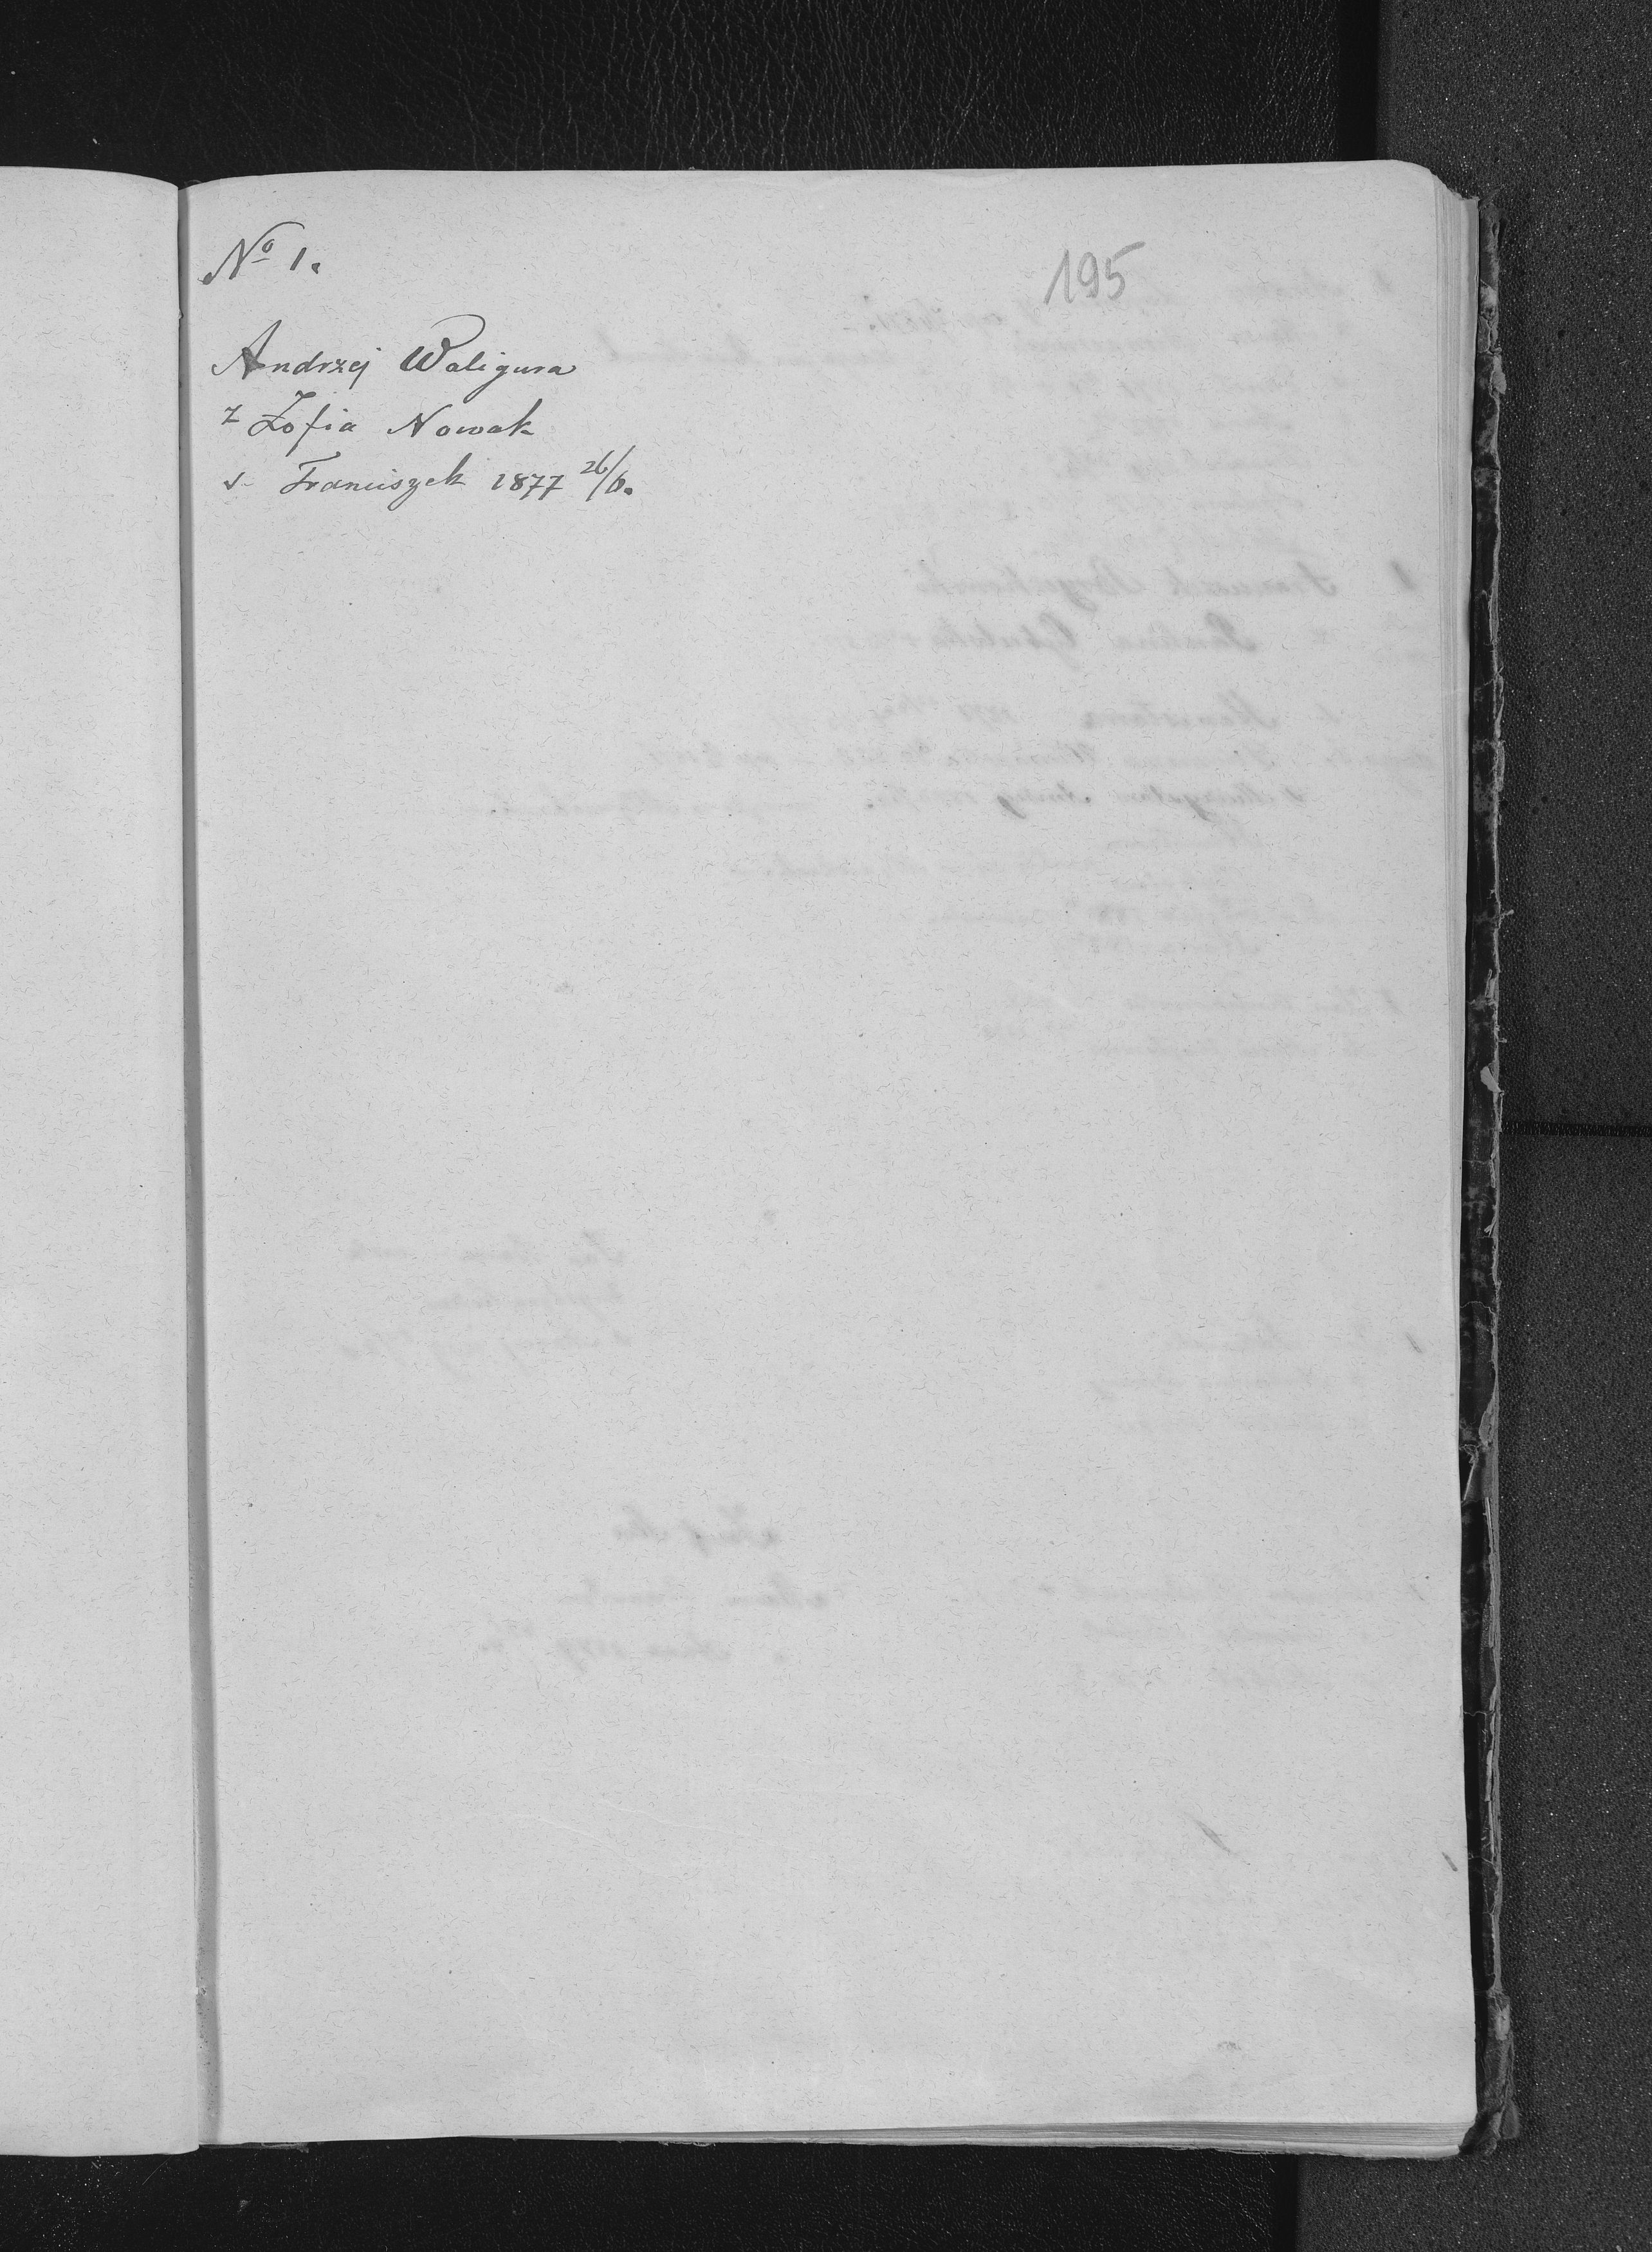 Nº 1.
195
Andrzej Waligura
z Zofia Nowak
s. Franciszek 1877 26/6.